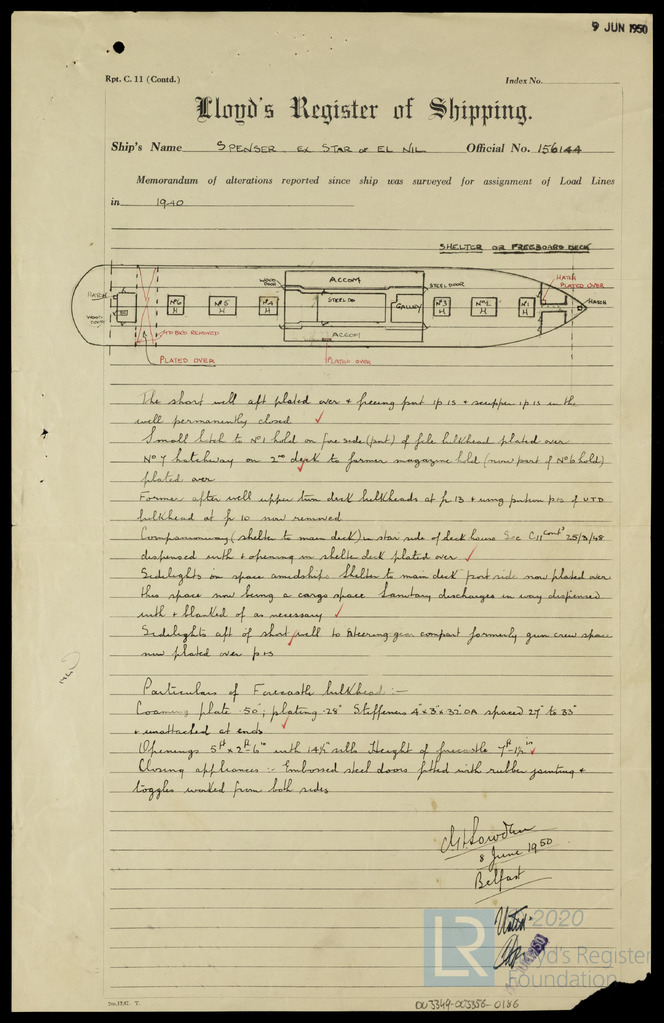 9 JUN 1950
Rpt. C. 11 (Contd.)
Index No.
Lloyd's Register of Shipping.
Ship's Name SPENSER ex STAR OF EL NIL Official No. 156144
Memorandum of alterations reported since ship was surveyed for assignment of Load Lines
in 1940
SHELTER OR FREEBOARD DECK
HATCH
WOOD DOOR
ACCOM
STEEL DOOR
HATCH
PLATED OVER
HATCH
Nº6 H
Nº5 H
Nº4 H
GALLEY
Nº3 H
Nº2 H
Nº1 H
ACCOM
REMOVED
PLATED OVER
PLATED OVER
The short well aft plated over + freeing port 1 p 1 s + scupper 1 p 1 s in the
well permanently closed ✓
Small hatch to Nº1 hold on fore side (port) of fcle bulkhead plated over
Nº 7 hatchway on 2nd deck to former magazine hold (now part of Nº6 hold)
plated over
Former after well upper twn deck bulkheads at fr 13 + wing portion p + s of UTD
bulkhead at fr 10 now removed
Companionway (shelter to main deck) in star side of deck house See C11 Contd 25/3/48
dispensed with + opening in shelter deck plated over ✓
Sidelights in space amidships Shelter to main deck port side now plated over
this space now being a cargo space Sanitary discharges in way dispensed
with + blanked of as necessary ✓
Sidelights aft of short well to steering gear compart formerly gun crew space
now plated over p+s
Particulars of Forecastle bulkhead :—
Coaming plate .50"; plating .28" Stiffeners 4" x 3" x .32 OA spaced 27" to 33"
+ unattached at ends
Openings 5ft x 2ft-6in with 14½" sills Height of forecastle 7ft-1½in ✓
Closing appliances :- Embossed steel doors fitted with rubber jointing +
toggles worked from both sides
8 June 1950
Belfast
Noted
LR
© 2020
Lloyd's Register
Foundation
003349-003356-0186